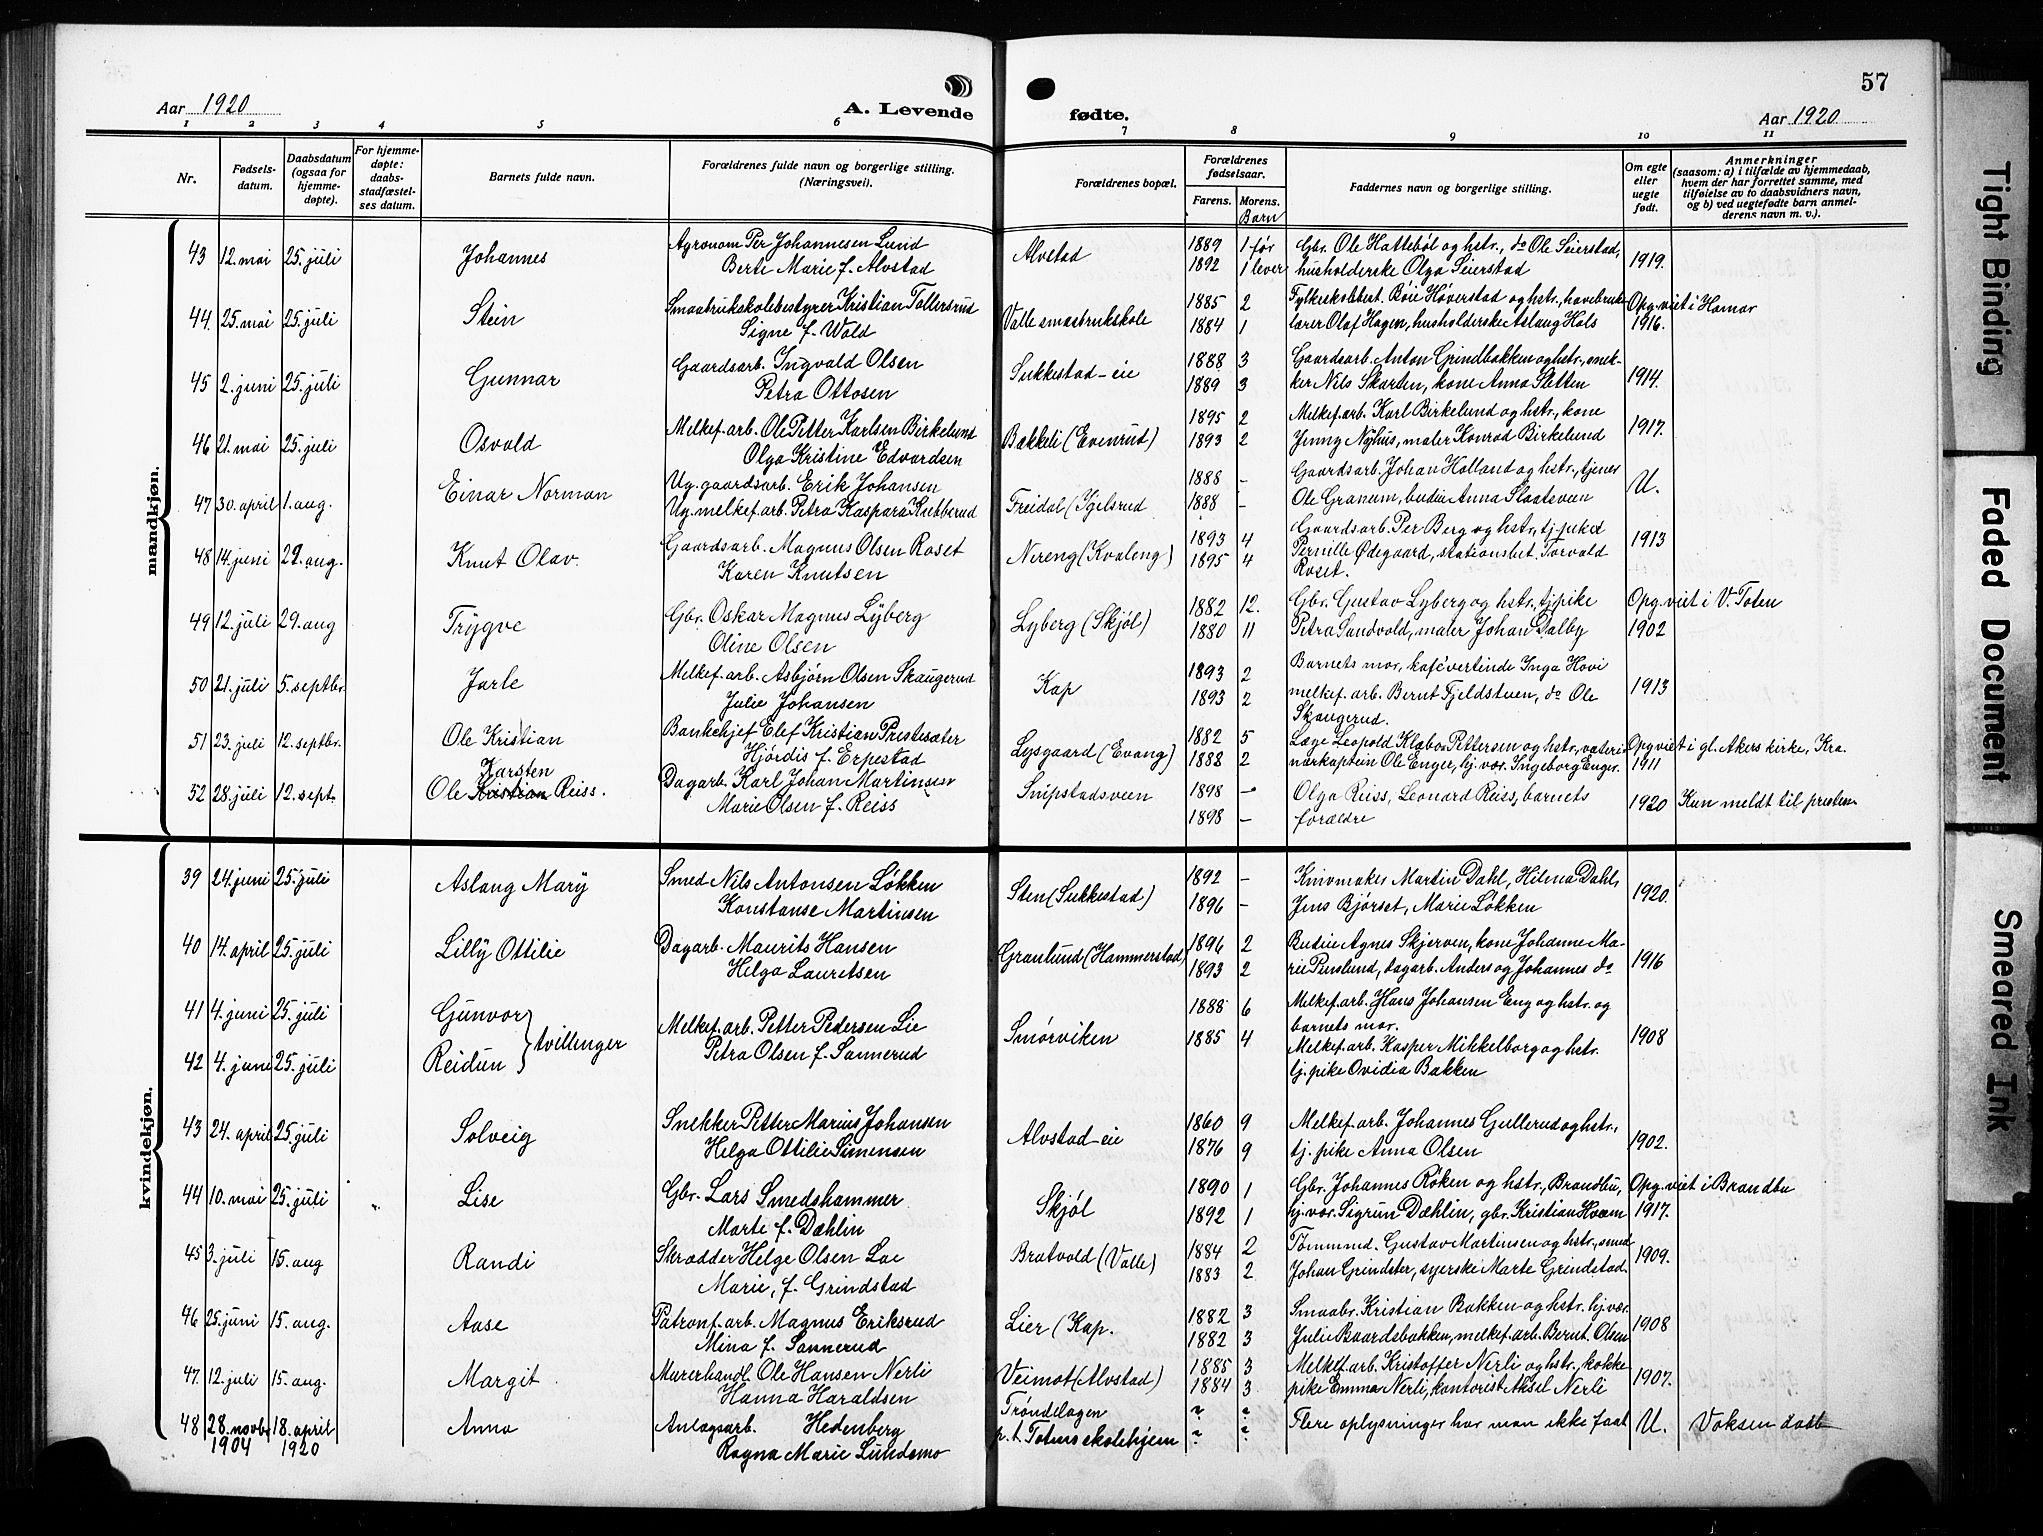 57
Aar 1920
A. Levende fødte.
Aar 1920
1 2 3 4 5 6 7 8 9 10 11
Nr.
Fødsels-datum.
Daabsdatum (ogsaa for hjemme-døpte).
For hjemme-døpte: daabs-stadfæstel-ses datum.
Barnets fulde navn.
Forældrenes fulde navn og borgerlige stilling. (Næringsvei).
Forældrenes bopæl.
Forældrenes fødselsaar.
Farens. Morens.
Barn
Faddernes navn og borgerlige stilling.
Om egte eller uegte født.
Anmerkninger (saasom: a) i tilfælde av hjemmedaab, hvem der har forrettet samme, med tilføielse av to daabsvidners navn, og b) ved uegtefødte barn anmel-derens navn m. v.).
mandkjøn.
43 12. mai 25. juli Johannes Agronom Per Johannesen Lund Alvstad 1889 1 før Gbr. Ole Hattebøl og hstr., do Ole Seierstad, 1919.
Berte Marie f. Alvstad 1892 1 lever husholderske Olga Seierstad
44. 25. mai 25. juli Stein Smaabrukskolebestyrer Kristian Tollersrud Valle smaabrukskole 1885 2 Fylkeskabbest. Bøie Høverstad og hstr., havebruk- Opg. viet i Hamar
Signe f. Wold 1884 1 lærer Olaf Hagen, husholderske Aslaug Hols 1916.
45 2. juni 25. juli Gunnar Gaardsarb. Ingvald Olsen Sukkestad-eie 1888 3 Gaardsarb. Anton Grindbakken og hstr., snek- 1914.
Petra Ottosen 1889 3 ker Nils Skarten, kone Anna Sletten
46 21. mai 25. juli Osvald Melkef. arb. Ole Petter Karlsen Birkelund Bakkeli (Evenrud) 1895 2 Melkef. arb. Karl Birkelund og hstr., kone 1917.
Olga Kristine Edvardsen 1893 2 Jenny Nyhus, maler Konrad Birkelund
47 30. april 1. aug. Einar Norman Ug. gaardsarb. Erik Johansen Freidal (Igelsrud 1888 - Gaardsarb. Johan Holland og hstr., tjener U.
Ug. melkef. arb. Petra Kaspara Knibberud 1888 - Ole Granum, budeie Anna Slaatsveen
48 14. juni 29. aug. Knut Olav. Gaardsarb. Magnus Olsen Roset Nereng (Kvaleng) 1893 4 Gaardsarb. Per Berg og hstr., tj. pike 1913
Karen Knutsen 1895 4 Pernille Ødegaard, stationsbet. Torvald
Roset.
49 12. juli 29. aug Trygve Gbr. Oskar Magnus Lyberg Lyberg (Skjøl) 1882 12. Gbr. Gustav Lyberg og hstr., tj. pike Opg. viet i V. Toten
Oline Olsen 1880 11 Petra Sandvold, maler Johan Dalby 1902
50 21. juli 5. septbr. Jarle Melkef. arb. Asbjørn Olsen Skaugerud Kap 1893 2 Barnets mor, kafévertinde Inga Hovi 1913
Julie Johansen 1893 2 melkef. arb. Bernt Fjeldstuen, do Ole
Skaugerud.
51 23. juli 12. septbr. Ole Kristian Bankchef Elef Kristian Prestesæter Lysgaard (Evang) 1882 5 Læge Leopold Klabo Pettersen og hstr., veteri- Opg viet i gl. Akers kirke, Kra.
Hjørdis f. Erpestad 1888 2 nærkaptein Ole Enger, hj. vær. Ingeborg Enger. 1911
Karsten
52 28. juli 12. sept. Ole Kristian Reiss. Dagarb. Karl Johan Martinsen Snipstadsveen 1898 - Olga Reiss, Leonard Reiss, barnets 1920 Kun meldt til presten
Marie Olsen f. Reiss 1898 - forældre
kvindekjøn.
39 24. juni 25. juli Aslaug Mary Smed Nils Antonsen Løkken Sten (Sukkestad) 1892 - Knivmaker Martin Dahl, Hilma Dahl, 1920.
Konstanse Martinsen 1896 - Jens Bjørset, Marie Løkken
40 14. april 25. juli Lilly Ottilie Dagarb. Maurits Hansen Granlund (Hammerstad) 1896 2 Budeie Agnes Skjerven, kone Johanne Ma- 1916
Helga Lauritsen 1893 2 rie Penslund, dagarb. Anders og Johannes do
41 4. juni 25. juli Gunvor } tvillinger Melkef. arb. Petter Pedersen Lie Smørviken 1888 6 Melkef. arb. Hans Johansen Eng og hstr. og 1908
barnets mor.
42 4. juni 25. juli Reidun Petra Olsen f. Sannerud 1885 4 Melkef. arb. Kasper Mikkelborg og hstr.
tj. pike Ovidia Bakken
43 24. april 25. juli Solveig Snekker Petter Marius Johansen Alvstad-eie 1860 9 Melkef. arb. Johannes Gullerud og hstr., 1902.
Helga Ottilie Simensen 1876 9 tj. pike Anna Olsen
44 10. mai 25. juli Lise Gbr. Lars Smedshammer Skjøl 1890 1 Gbr. Johannes Røken og hstr., Brandbu, Opg. viet i Brandbu
Marte f. Dæhlin 1892 1 hj. vær. Sigrun Dæhlin, gbr. Kristian Hvam 1917.
45 3. juli 15. aug Randi Skrædder Helge Olsen Lae Bratvold (Valle) 1884 2 Tømmmd. Gustav Martinsen og hstr., smed 1909.
Marie, f. Grindstad 1883 2 Johan Grindster, syerske Marte Grindstad
46 25. juni 15. aug. Aase Patronf. arb. Magnus Eriksrud Lier (Kap. 1882 3 Smaabr. Kristian Bakken og hstr. hj. vær. 1908
Mina f. Sannerud 1882 3 Julie Baardsbakken, melkef. arb. Bernt Olsen
47. 12. juli 15. aug. Margit Murerhandl. Ole Hansen Nerli Veimot (Alvstad) 1885 3 Melkef. arb. Kristoffer Nerli og hstr., kokke 1907.
Hanna Haraldsen 1884 3 pike Emma Nerli, kontorist Aksel Nerli
48 28. novbr. 18. april Anna Anlægsarb. Hedenberg Trøndelagen ? ? Flere oplysninger har man ikke faat U. Voksen daab
1904 1920 Ragna Marie Lundemo p. t. Totens skolehjem ? ?
Tight Binding
Faded Document
Smeared Ink